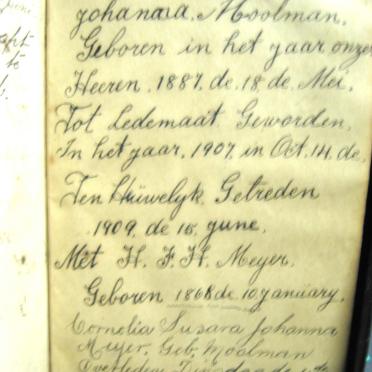 Johanna. Moolman.
Geboren in het jaar onzes
Heeren. 1887. de. 18. de. Mei.
Tot Ledemaat Geworden.
In het jaar. 1907. in Oct. 14. de.
Ten Hüwelyk. Getreden
1909. de 15. June.
Met H. F. H. Meyer.
Geboren 1868 de. 10 January.
Cornelia Susara Johanna
Meyer. Geb. Moolman
Overleden Dinsdag de